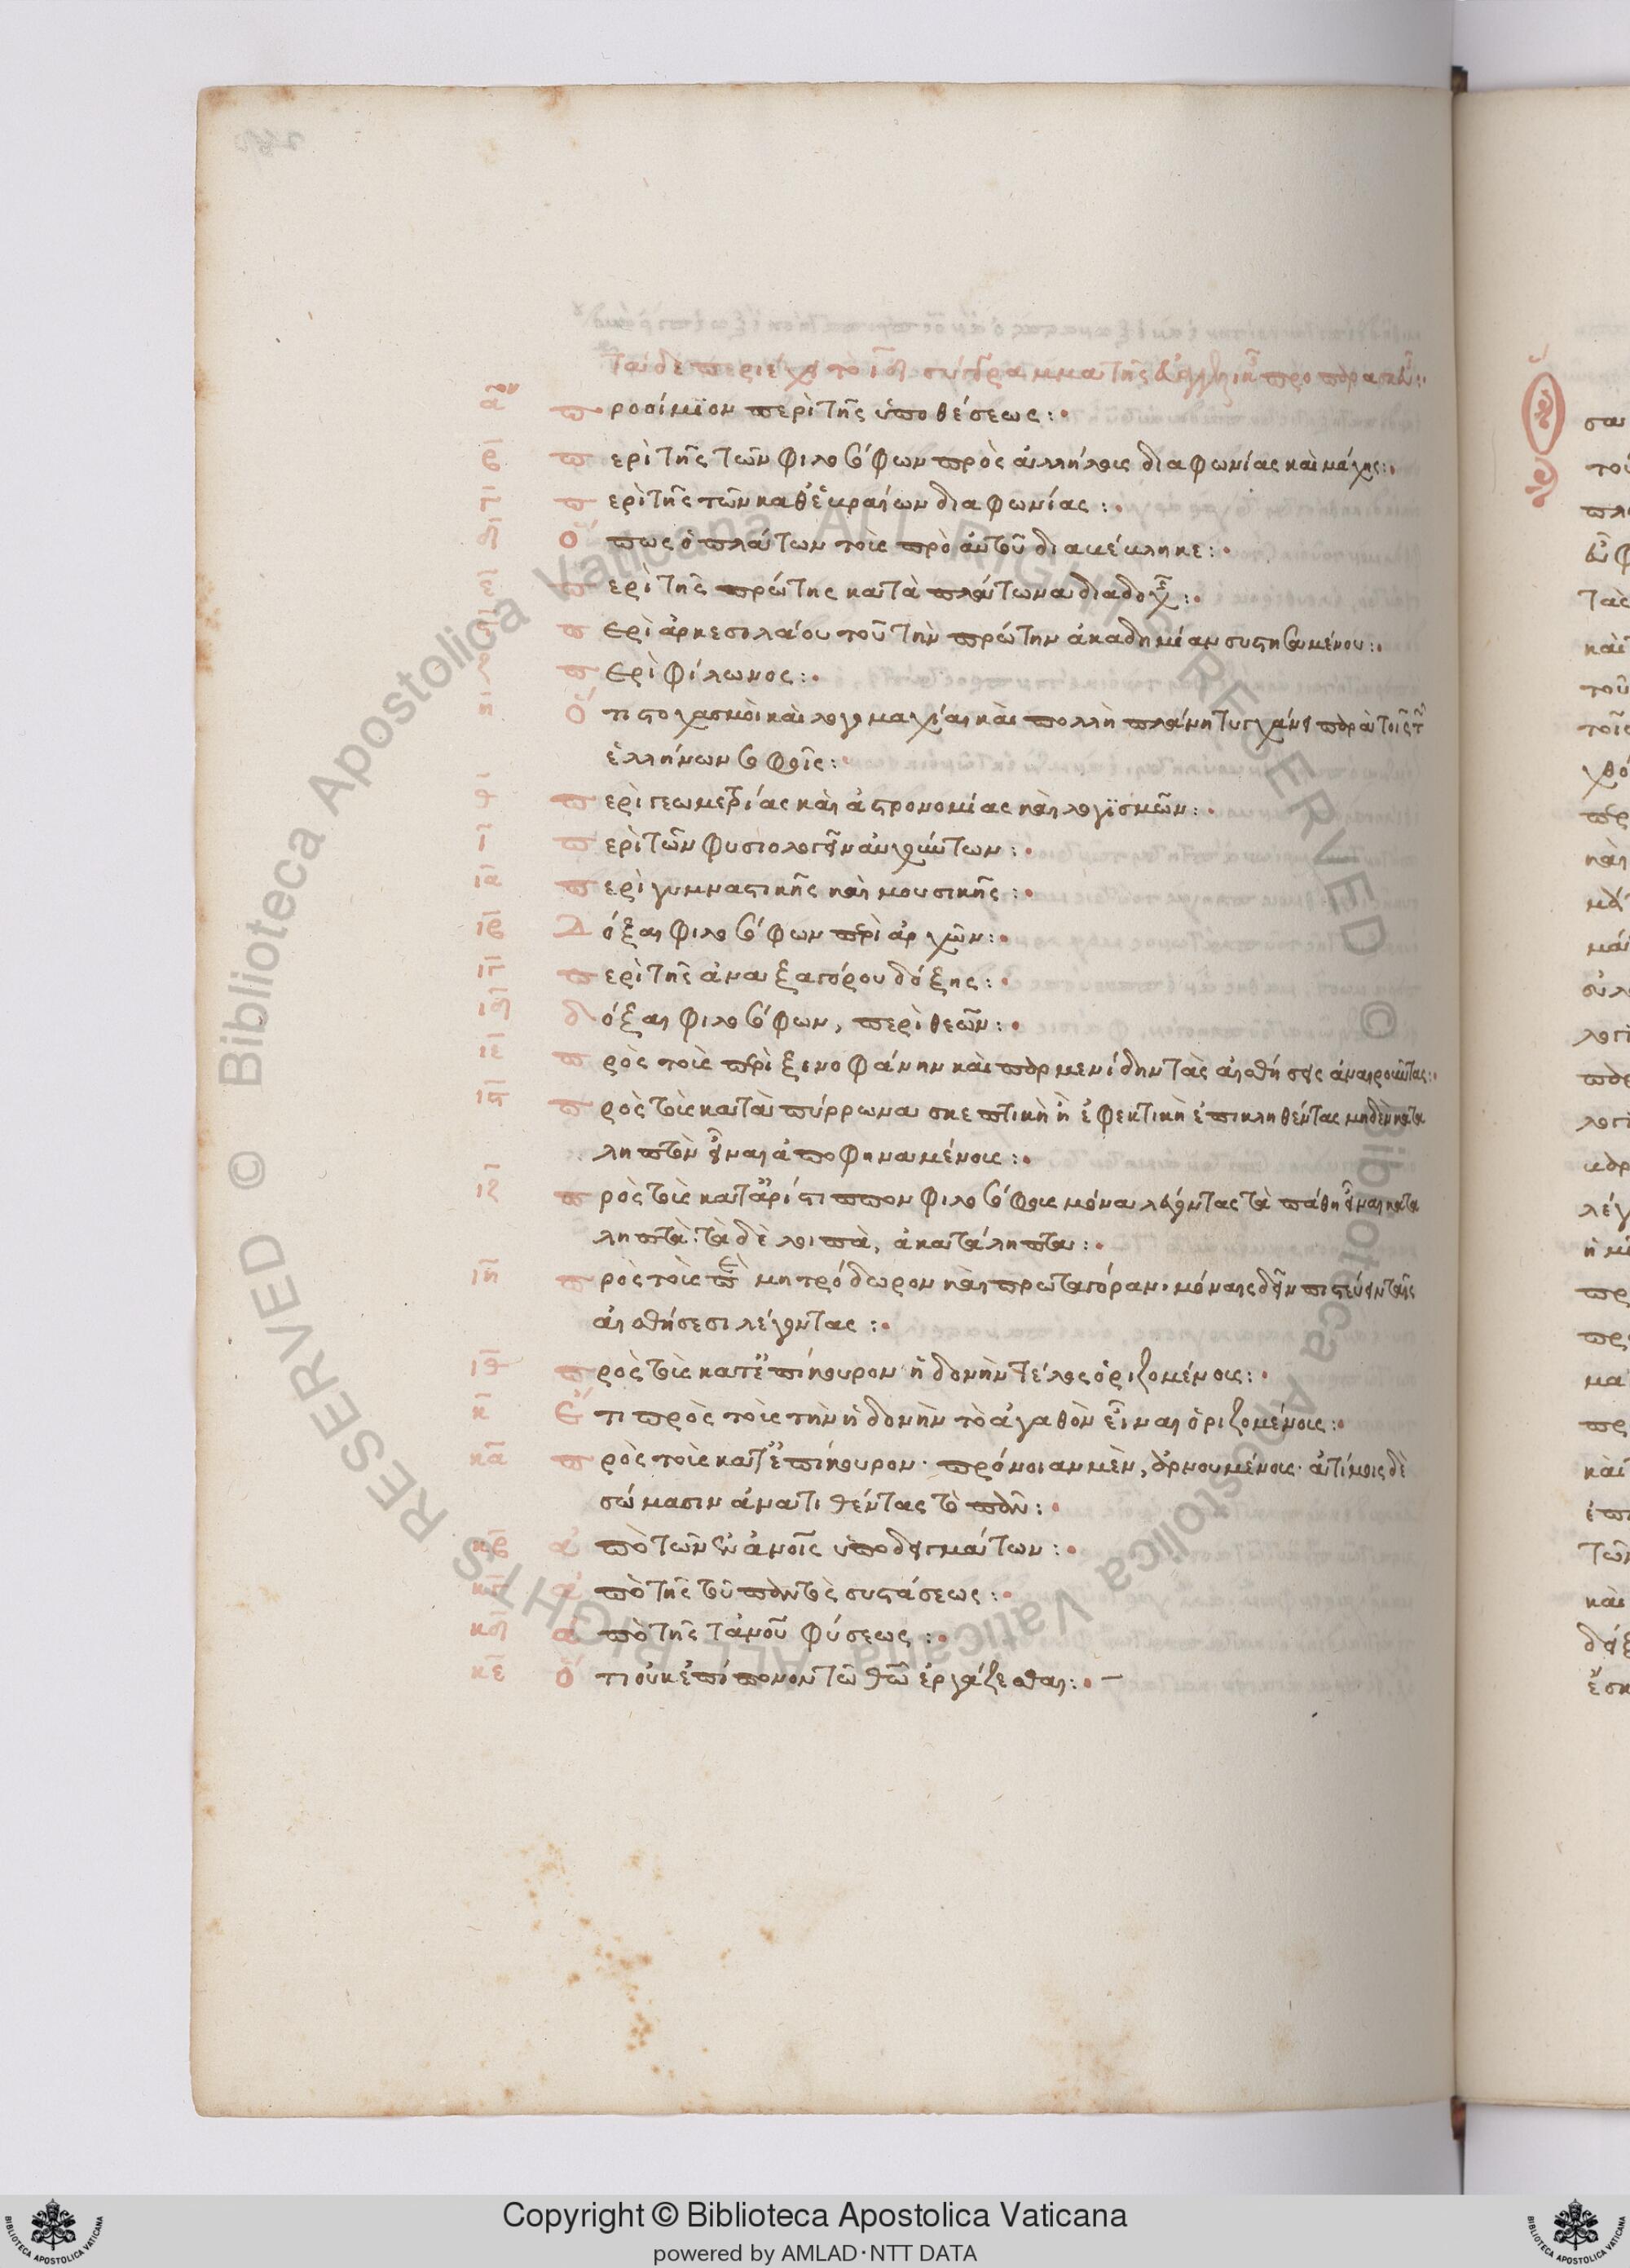 Τάδε περιέχει τὸ ιδ σύγγραμμα τῆς εὐαγγελικῆς προπαρασκευῆς:
αον Προοίμϊον περὶ τῆς ὑποθέσεως:
β Περὶ τῆς τῶν φιλοσόφων πρὸς ἀλλήλους διαφωνίας καὶ μάχης:
γ Περὶ τῆς τῶν καθ' ἑκραίων διαφωνίας:
δ Ὅπως ὁ πλάτων τοὺς πρὸ αὐτοῦ διακέκληκε:
ε Περὶ τῆς πρώτης κατὰ πλάτωνα διαδοχῆς:
ς Περὶ ἀρκεσιλαίου τοῦ τὴν πρώτην ἀκαδημίαν συστησαμένου:
ζ Περὶ φίλωνος:
η Ὅτι στοχασμοὶ καὶ λογομαχίαι καὶ πολλὴ πλάνη τυγχάνει παρὰ τοῖς τῶν
ἑλλήνων σοφοῖς:
θ Περὶ γεωμετρίας καὶ ἀστρονομίας καὶ λογϊσμῶν:
ι Περὶ τῶν φυσιολογεῖν αὐχούντων:
ια Περὶ γυμναστικῆς καὶ μουσικῆς:
ιβ Δόξαι φιλοσόφων περὶ ἀρχῶν:
ιγ Περὶ τῆς ἀναξαγόρου δόξης:
ιδ δόξαι φιλοσόφων, περὶ θεῶν:
ιε Πρὸς τοὺς περὶ ξενοφάνην καὶ παρμενίδην τὰς αἰσθήσεις ἀναιροῦντας:
ις Πρὸς τοὺς κατὰ πύρρωνα σκεπτικὴ ἢ ἐφεκτικὴ ἐπικληθέντας μηδὲν κατα
ληπτὸν εἶναι ἀποφηναμένους:
ιζ Πρὸς τοὺς κατ' ἀρίστιππον φιλοσόφους μόνα λέγοντας τὰ πάθη εἶναι κατα
ληπτὰ· τὰ δὲ λοιπὰ, ἀκατάληπτα:
ιη Πρὸς τοὺς περὶ μητρόδωρον καὶ πρωταγόραν· μόναις δεῖν πιστεύειν ταῖς
αἰσθήσεσι λέγοντας:
ιθ Πρὸς τοὺς κατ' ἐπίκουρον ἡδονὴν τέλος ὁριζομένους:
κ Ἔτι πρὸς τοὺς τὴν ἡδονὴν τὸ ἀγαθὸν εἶναι ὁριζομένους:
κα Πρὸς τοὺς κατ' ἐπίκουρον· πρόνοιαν μὲν, ἀρνουμένους· ἀτίμοις δὲ
σώμασιν ἀνατιθέντας τὸ πᾶν:
κβ ἀπὸ τῶν ἐν ἀνοῖς ὑποδειγμάτων:
κγ ἀπὸ τῆς τοῦ παντὸς συστάσεως:
κδ ἀπὸ τῆς τἀνοῦ φύσεως:
κε Ὅτι οὐκ ἐπίπονον τῶ θῶ ἐργάζεσθαι:
Copyright © Biblioteca Apostolica Vaticana
powered by AMLAD·NTT DATA